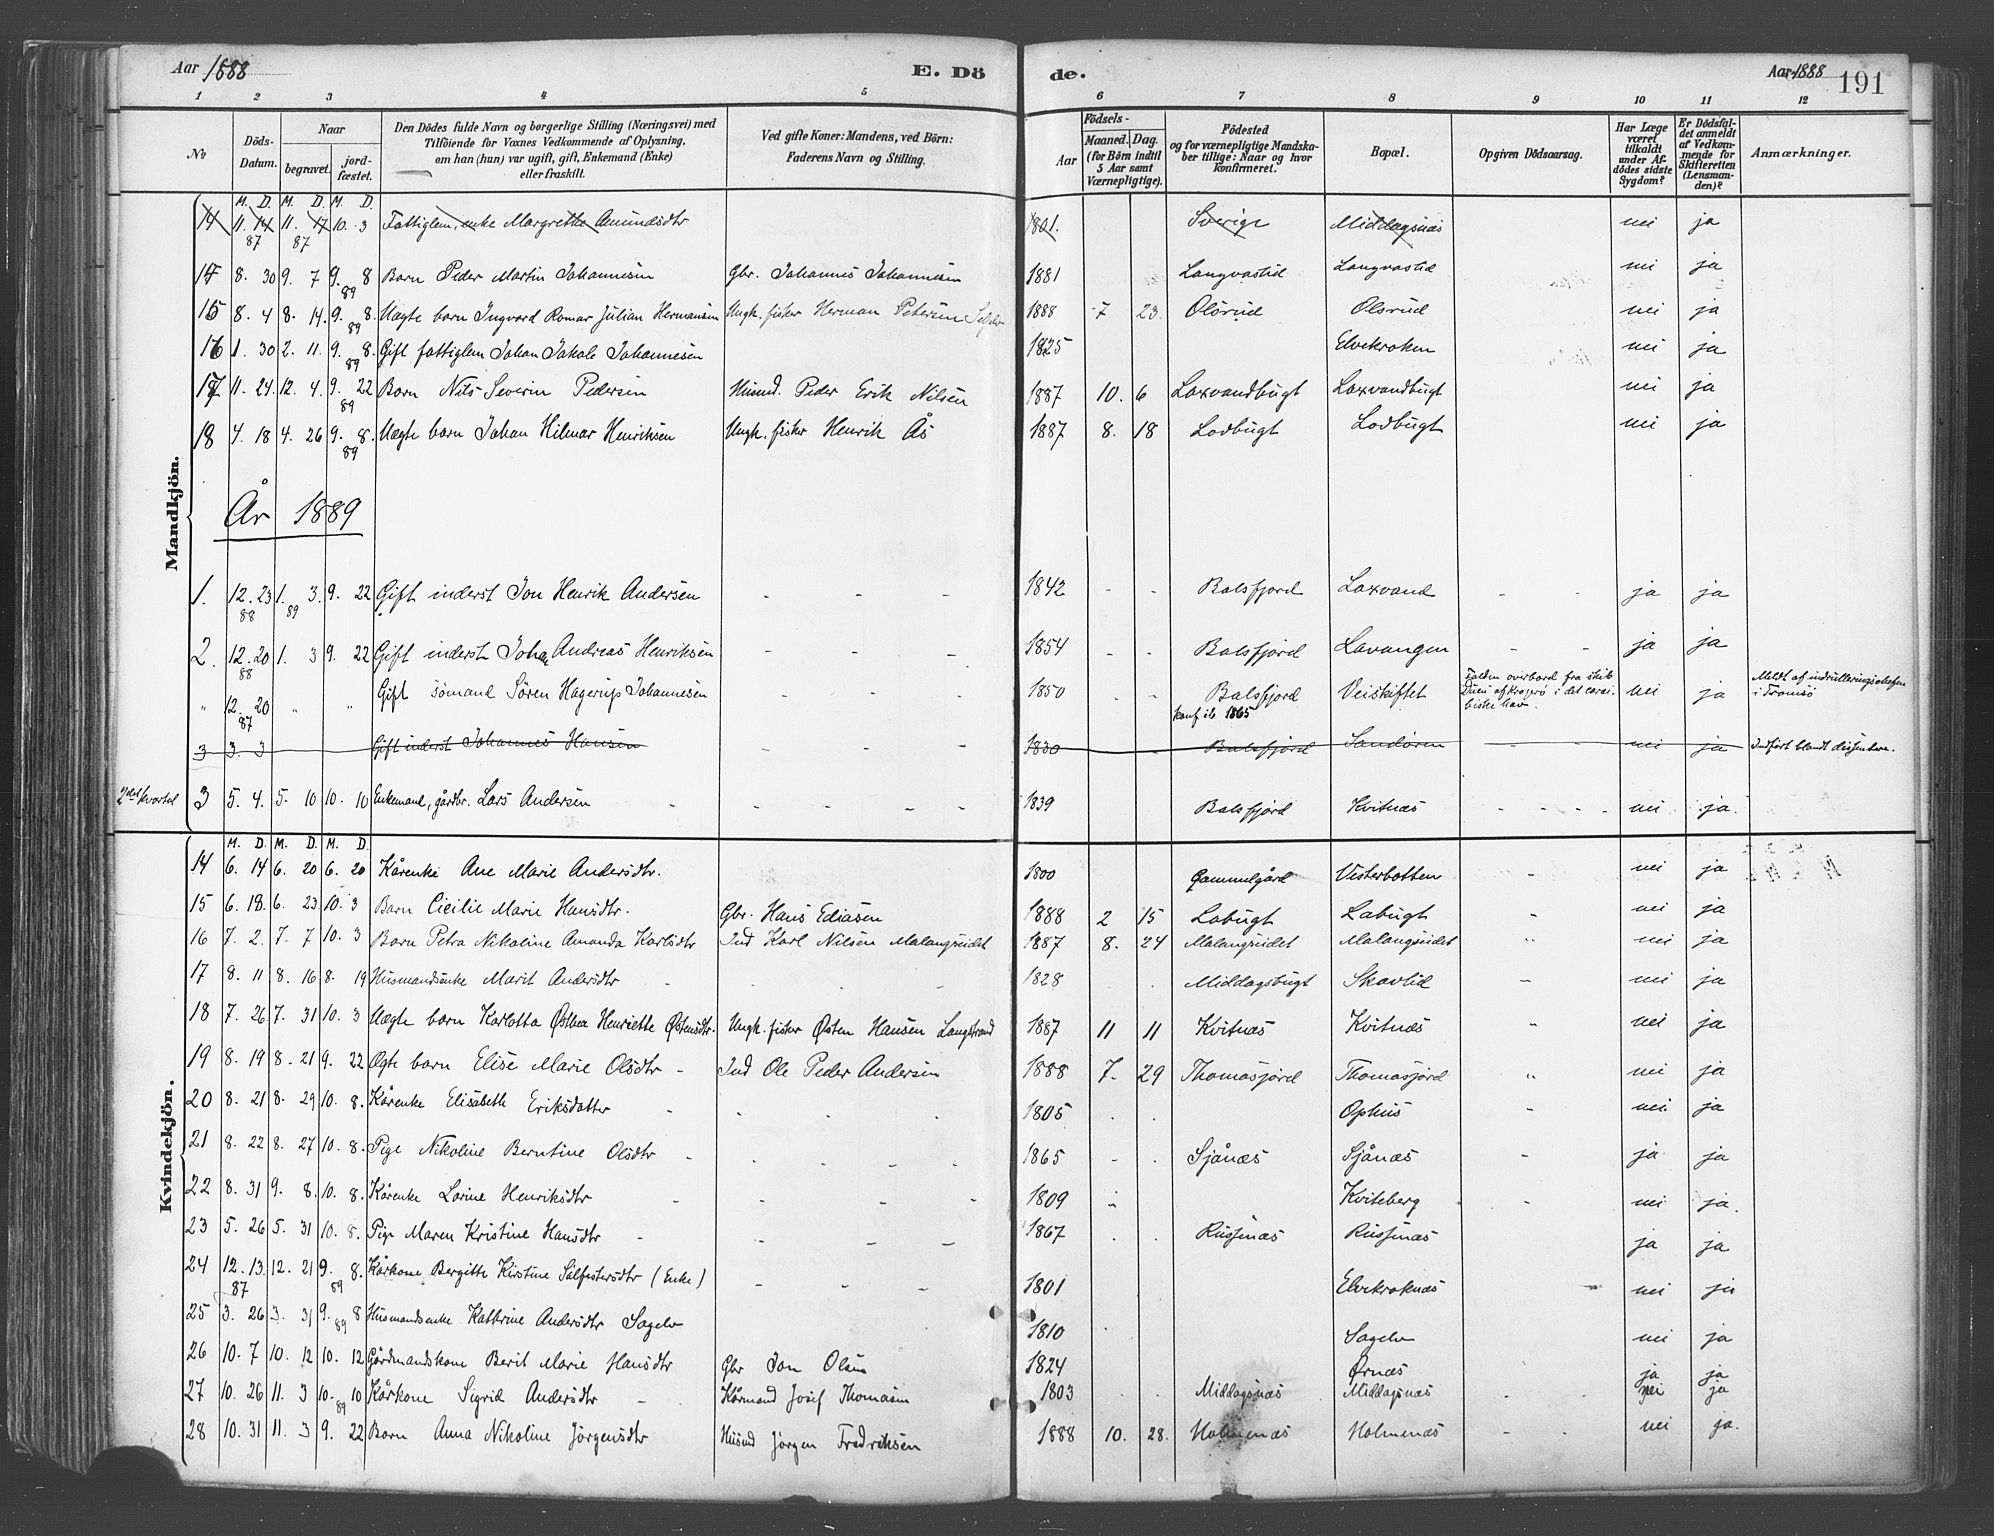 Aar 1888 E. Döde. Aar 1888 191
1 2 3 4 5 6 7 8 9 10 11 12
No
Döds-Datum.
Naar begravet. jordfæstet.
Den Dödes fulde Navn og borgerlige Stilling (Næringsvei) med Tilföiende for Voxnes Vedkommende af Oplysning, om han (hun) var ugift, gift, Enkemand (Enke) eller fraskilt.
Ved gifte Koner: Mandens, ved Börn: Faderens Navn og Stilling.
Födsels-
Aar Maaned. Dag. (for Börn indtil 5 Aar samt Værnepligtige).
Födested og for værnepligtige Mandskaber tillige: Naar og hvor konfirmeret.
Bopæl.
Opgiven Dödsaarsag.
Har Læge været tilkaldt under Afdödes sidste Sygdom?
Er Dödsfaldet anmeldt af Vedkommende for Skifteretten (Lensmanden)?
Anmærkninger.
Mandkjön.
M. D. M. D. M. D.
14 11. 14 87 11. 17 87 10. 3 Fattiglem, enke Margrethe Amundsdtr 1801. Sverige Middagsnæs nei ja
14 8. 30 9. 7 9. 8 89 Barn Peder Martin Johannesen Gbr. Johannes Johannesen 1881 Langvastid Langvastid nei ja
15 8. 4 8. 14. 9. 8. 89 Uægte barn Ingvard Romar Julian Hermansen Ungk. fisker Herman Petersen 1888 7 23. Olsrud Olsrud nei ja
16 1. 30 2. 11. 9. 8. 89 Gift fattiglem Johan Jakob Johannesen 1825 Elvekroken nei ja
17 11. 24. 12. 4. 9. 22 89 Barn Nils Severin Pedersen Husmd. Peder Erik Nilsen 1887 10. 6 Laxvandbugt Laxvandbugt nei ja
18 4. 18 4. 26 9. 8. 89 Uægte barn Johan Hilmar Henriksen Ungk. fisker Henrik Ås 1887 8. 18 Lodbugt Lodbugt nei ja
År 1889
1. 12. 23 88 1. 3. 89 9. 22 Gift inderst Jon Henrik Andersen - - - 1842 - - Balsfjord Laxvand - - ja ja
2. 12. 20 88 1. 3 9. 22 Gift inderst Johan Andreas Henriksen - - - 1854 - - Balsfjord Lavangen - - ja ja
" 12. 20 87 " " Gift sömand Sören Hagerup Johannesen - - - 1850 - - Balsfjord konf ib 1865 Veiskiftet Falden overbord fra skib Duen af Kragerø i det caraibiske hav. nei ja Meldt af indrulleringschefen i Tromsö
3 3. 3 Gift inderst Johannes Hansen - - - 1830 - Balsfjord Sandören - - nei ja Indført blandt dissentere.
2det kvartal 3 5. 4. 5. 10 10. 10 Enkemand, gårdbr. Lars Andersen - - - - 1839 Balsfjord Kvitnæs - - - - nei ja.
Kvindekjön.
M. D. M. D. M. D.
14 6. 14 6. 20 6. 20 Kårenke Ane Marie Andersdtr. 1800 Gammelgård Vesterbotten - nei ja
15 6. 18. 6. 23 10. 3 Barn Cicilie Marie Hansdtr. Gbr. Hans Ediasen 1888 2 15 Labugt Labugt " nei ja
16 7. 2. 7. 7 10. 3 Barn Petra Nikoline Amanda Karlsdtr Ind Karl Nilsen Malangseidet 1887 8. 24 Malangseidet Malangseidet " nei ja
17 8. 11 8. 16 8. 19 Husmandsenke Marit Andersdtr 1828 Middagsbugt Skavlid - nei ja
18 7. 26 7. 31 10. 3 Uægte barn Karlotta Østhea Henriette Østensdtr. Ungk. fisker Østen Hansen Langstrand 1887 11 11 Kvitnæs Kvitnæs " nei ja
19 8. 19 8. 21 9. 22 Ægte barn Elise Marie Olsdtr - Ind Ole Peder Andersen 1888 7. 29 Thomasjord Thomasjord " nei ja
20 8. 21 8. 29 10. 8. Kårenke Elisabeth Eriksdatter 1805 Ophus - nei ja
21 8. 22 8. 27 10. 8. Pige Nikoline Berntine Olsdtr - 1865 - Sjånæs Sjånæs - ja ja
22 8. 31 9. 8. 10. 8. Kårenke Lorine Henriksdtr 1809 Kviteberg - nei ja.
23 5. 26 5. 31 10. 8. Pige Maren Kristine Hansdtr - - - 1867 Russenæs Russenæs ja ja
24 12. 13. 87 12. 21 9. 8. 89 Kårkone Bergitte Kirstine Sølfestersdtr (Enke) - - - 1801 Elvekroknæs nei ja
25 3. 26 3. 31 9. 8 89 Husmandsenke Kathrine Andersdtr Sagelv 1810 Sagelv nei ja
26 10. 7 10. 12 10. 12 Gårdmandskone Berit Marie Hansdtr Gbr Jon Olsen 1824 Ørnæs ja ja
27 10. 26 11. 3 10. 10 89 Kårkone Sigrid Andersdtr Kårmand Josef Thomasen 1803 Middagsnæs Middagsnæs nei ja
28 10. 31 11. 3 9. 22 Barn Anna Nikoline Jörgensdtr Husmd Jörgen Fredriksen 1888 10. 28. Holmenæs Holmenæs - - nei ja.